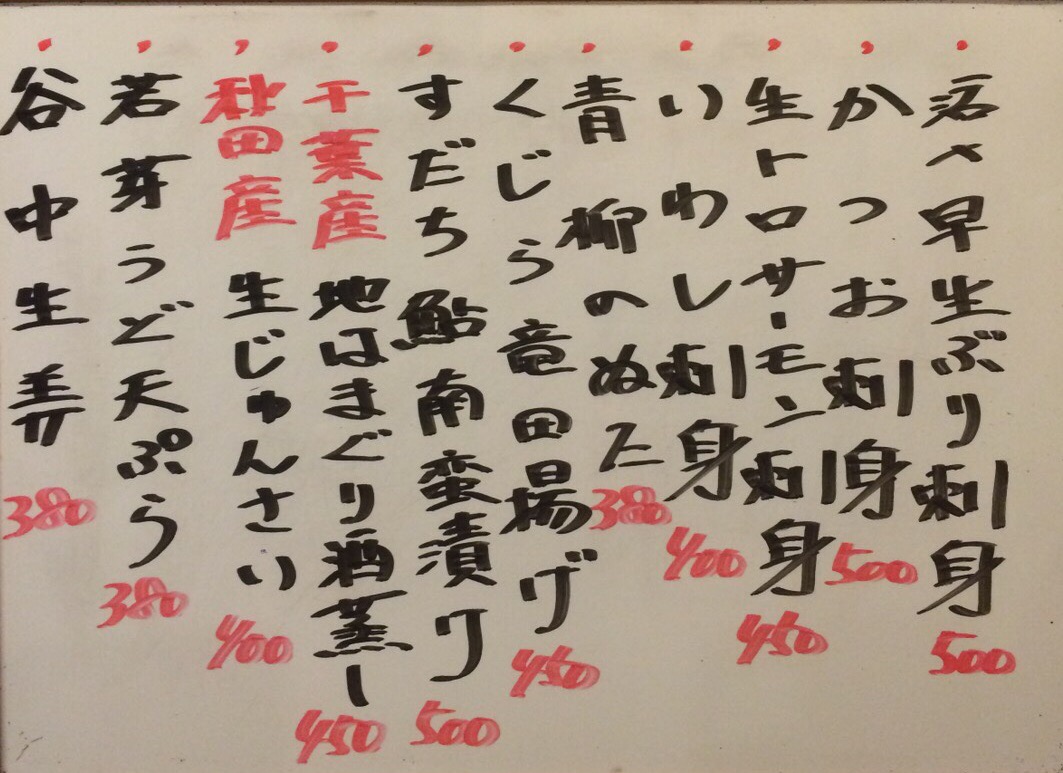 ・活〆早生ぶり刺身 500
・かつお刺身 500
・生トロサーモン刺身 450
・いわし刺身 400
・青柳のぬた 380
・くじら竜田揚げ 450
・すだち鮎南蛮漬け 500
・千葉産 地はまぐり酒蒸し 450
・秋田産 生じゅんさい 400
・若芽うど天ぷら 380
・谷中生姜 380